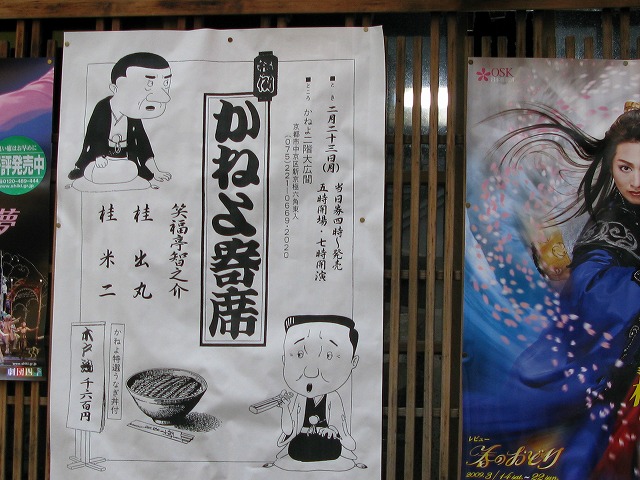 ■とき 二月二十三日(月)
当日券四時〜発売
五時開場・七時開演
■ところ かねよ二階大広間
京都市中京区新京極六角東入
(075)221-0669・2020
かねよ寄席
笑福亭智之介
桂 出丸
桂 米二
かねよ特選うなぎ丼付
木戸銭 千六百円
OSK
レビュー
春のおどり
2009.3/14 sat.~22 sun.
評発売中
0120-489-444
夢
劇団四